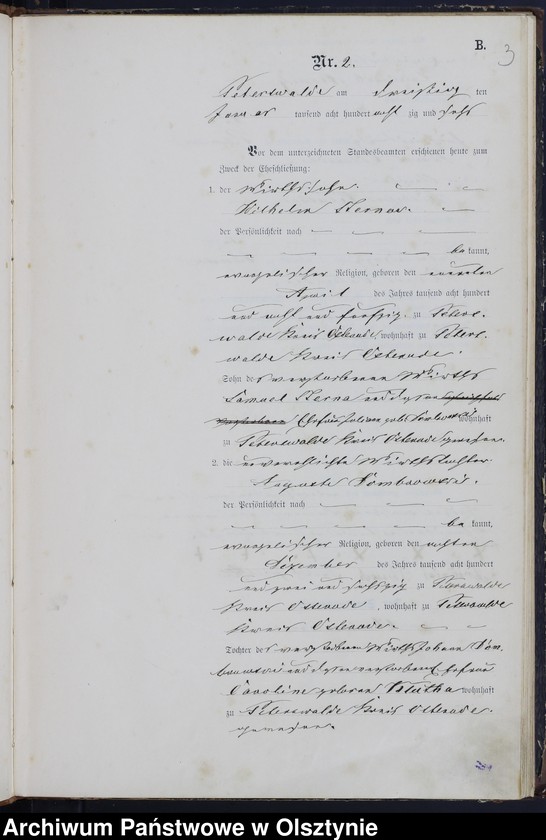 B.
3
Nr. 2.
Peterswalde am dreißig ten
Januar tausend acht hundert acht zig und sechs
Vor dem unterzeichneten Standesbeamten erschienen heute zum
Zweck der Eheschließung:
1. der Wirthssohn
Wilhelm
der Persönlichkeit nach
be kannt,
evangelischer Religion, geboren den neunten
April des Jahres tausend acht hundert
und acht und fünfzig zu Peters-
walde Kreis Osterode, wohnhaft zu Peters-
walde Kreis Osterode.
Sohn des verstorbenen Wirths
Samuel und dessen
Ehefrau geb. wohnhaft
zu Peterswalde Kreis Osterode gewesen.
2. die unverehlichte Wirthstochter
Auguste Dombrowski.
der Persönlichkeit nach
be kannt,
evangelischer Religion, geboren den achten
September des Jahres tausend acht hundert
und zwei und sechszig zu Peterswalde
Kreis Osterode, wohnhaft zu Peterswalde
Kreis Osterode.
Tochter des verstorbenen Wirths Johann Dom-
browski und dessen verstorbenen Ehefrau
Caroline geborene wohnhaft
zu Peterswalde Kreis Osterode
gewesen.
Archiwum Państwowe w Olsztynie